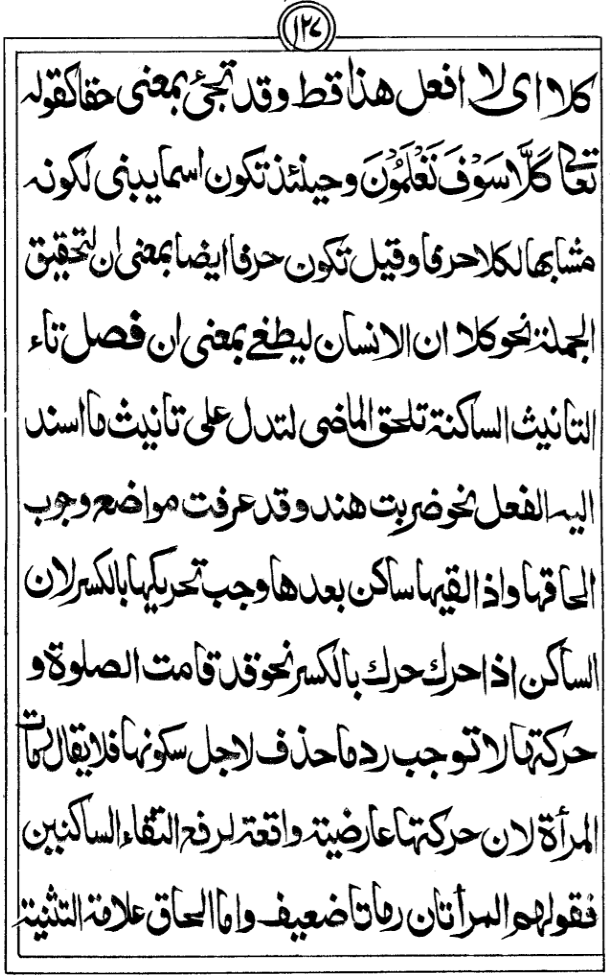 ١٢٧
كلا اى لا افعل هذا قط وقد تجئ بمعنى حقا كقوله
تعالى كَلَّا سَوْفَ تَعْلَمُوْنَ وحينئذ تكون اسما يبنى لكونه
مشابها لكلا حرفا وقيل تكون حرفا ايضا بمعنى ان لتحقيق
الجملة نحو كلا ان الانسان ليطغى بمعنى ان فصل تاء
التانيث الساكنة تلحق الماضى لتدل على تانيث ما اسند
اليه الفعل نحو ضربت هند وقد عرفت مواضع وجوب
الحاقها واذا لقيها ساكن بعدها وجب تحريكها بالكسر لان
الساكن اذا حرك حرك بالكسر نحو قد قامت الصلوة و
حركتها لا توجب رد ما حذف لاجل سكونها فلا يقال رمات
المرأة لان حركتها عارضية واقعة لرفع التقاء الساكنين
فقولهم المرأتان رماتا ضعيف واما الحاق علامة التثنية